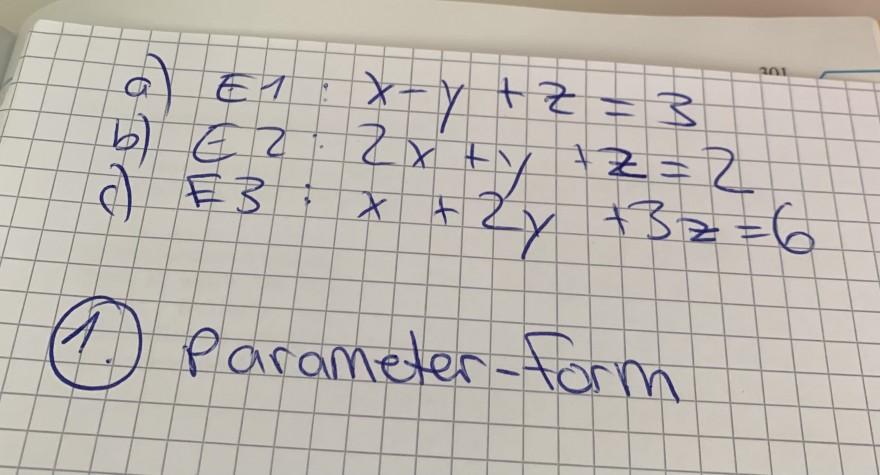 301
a) E1 : x - y + z = 3
b) E2 : 2x + y + z = 2
c) E3 : x + 2y + 3z = 6
1. Parameter-Form